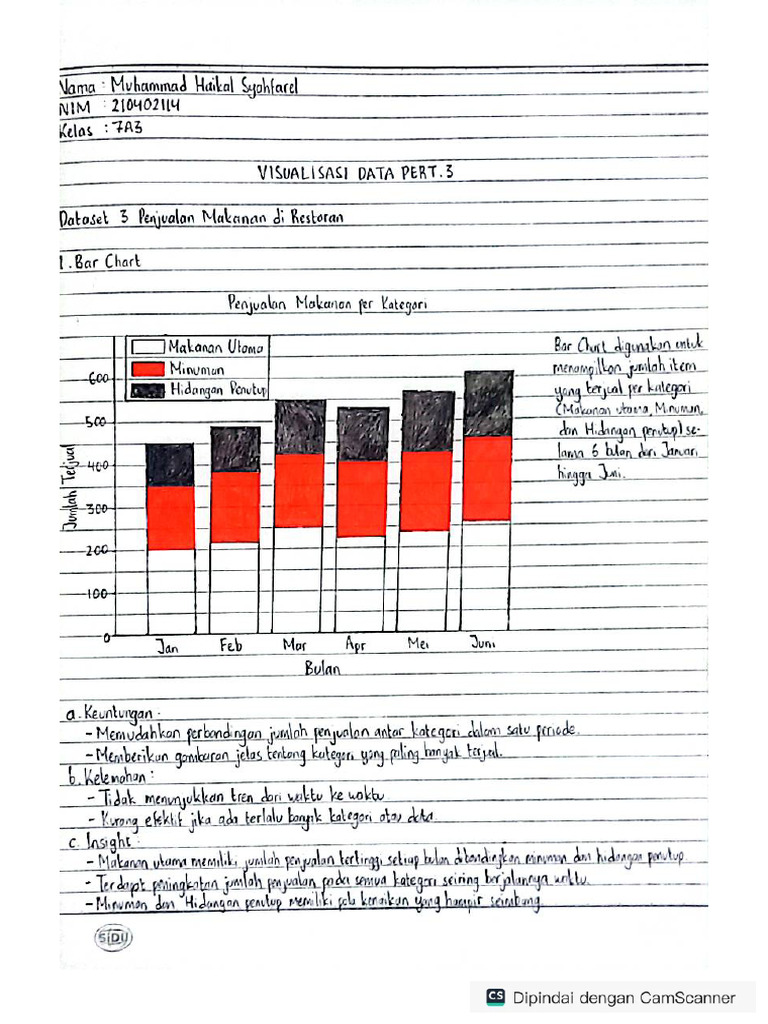 Nama : Muhammad Haikal Syahfarel
NIM : 210402114
Kelas : 7A3
VISUALISASI DATA PERT.3
Dataset 3 Penjualan Makanan di Restoran
1. Bar Chart
Penjualan Makanan per Kategori
Makanan Utama
Minuman
Hidangan Penutup
600
500
400
300
200
100
0
Jumlah Terjual
Jan Feb Mar Apr Mei Juni
Bulan
Bar Chart digunakan untuk
menampilkan jumlah item
yang terjual per kategori
(Makanan utama, Minuman,
dan Hidangan penutup) se-
lama 6 bulan dari Januari
hingga Juni.
a. Keuntungan :
- Memudahkan perbandingan jumlah penjualan antar kategori dalam satu periode.
- Memberikan gambaran jelas tentang kategori yang paling banyak terjual.
b. Kelemahan :
- Tidak menunjukkan tren dari waktu ke waktu
- Kurang efektif jika ada terlalu banyak kategori atau data.
c. Insight :
- Makanan utama memiliki jumlah penjualan tertinggi setiap bulan dibandingkan minuman dan hidangan penutup.
- Terdapt peningkatan jumlah penjualan pada semua kategori seiring berjalannya waktu.
- Minuman dan Hidangan penutup memiliki pola kenaikan yang hampir seimbang.
SiDU
CS Dipindai dengan CamScanner